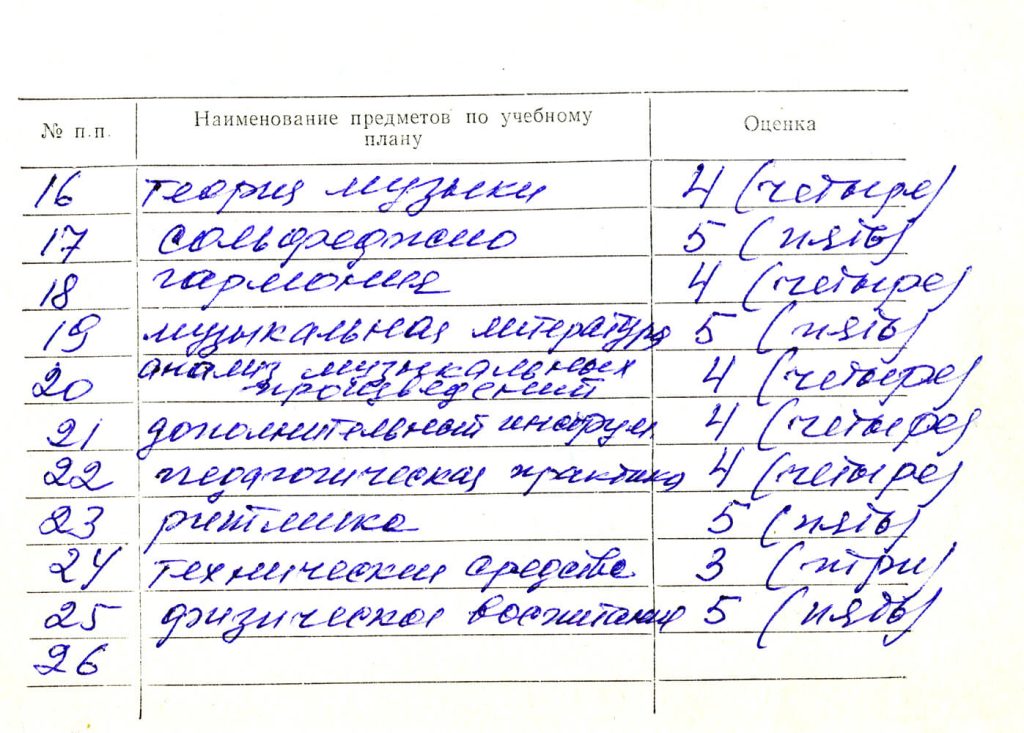 № п.п. Наименование предметов по учебному плану Оценка
16 теория музыки 4 (четыре)
17 сольфеджио 5 (пять)
18 гармония 4 (четыре)
19 музыкальная литература 5 (пять)
20 анализ музыкальных произведений 4 (четыре)
21 дополнительный инструм 4 (четыре)
22 педагогическая практика 4 (четыре)
23 ритмика 5 (пять)
24 технические средства 3 (три)
25 физическое воспитание 5 (пять)
26